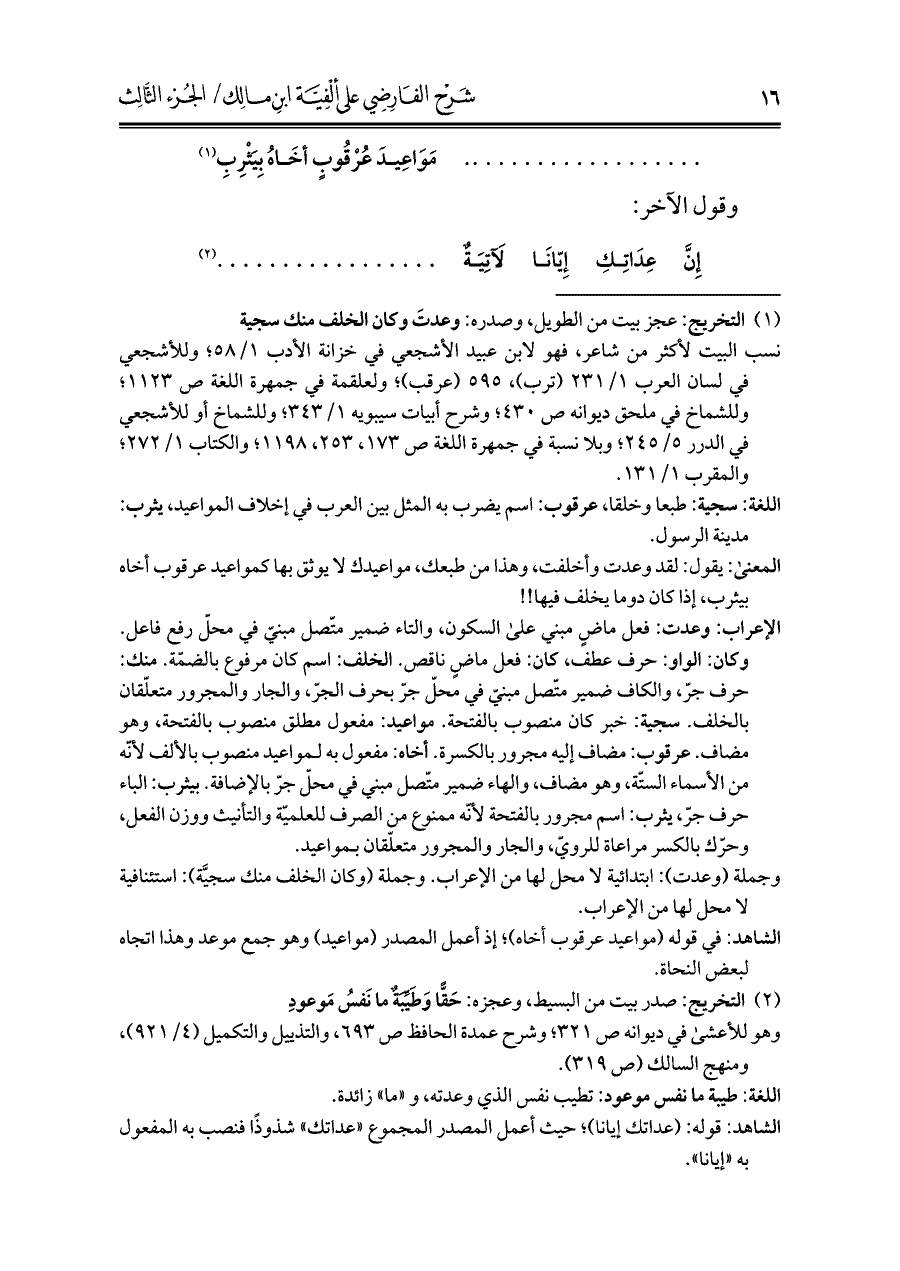 ١٦ شَرْح الفَارِضِي على ألْفِيَّة ابنِ مَالِك/ الجُزء الثَّالث
. . . . . . . . . . . . . . . . . . . مَوَاعِيدَ عُرْقُوبٍ أخَاهُ بِيَثْرِبِ(١)
وقول الآخر:
إِنَّ عِدَاتِكِ إِيّانَا لَآتِيَةٌ . . . . . . . . . . . . . . . . .(٢)
(١) التخريج: عجز بيت من الطويل، وصدره: وعدتَ وكان الخلف منك سجية
نسب البيت لأكثر من شاعر، فهو لابن عبيد الأشجعي في خزانة الأدب ١/ ٥٨؛ وللأشجعي
في لسان العرب ١/ ٢٣١ (ترب)، ٥٩٥ (عرقب)؛ ولعلقمة في جمهرة اللغة ص ١١٢٣؛
وللشماخ في ملحق ديوانه ص ٤٣٠؛ وشرح أبيات سيبويه ١/ ٣٤٣؛ وللشماخ أو للأشجعي
في الدرر ٥/ ٢٤٥؛ وبلا نسبة في جمهرة اللغة ص ١٧٣، ٢٥٣، ١١٩٨؛ والكتاب ١/ ٢٧٢؛
والمقرب ١/ ١٣١.
اللغة: سجية: طبعا وخلقا، عرقوب: اسم يضرب به المثل بين العرب في إخلاف المواعيد، يثرب:
مدينة الرسول.
المعنىٰ: يقول: لقد وعدت وأخلفت، وهذا من طبعك، مواعيدك لا يوثق بها كمواعيد عرقوب أخاه
بيثرب، إذا كان دوما يخلف فيها!!
الإعراب: وعدت: فعل ماضٍ مبني علىٰ السكون، والتاء ضمير متّصل مبنيّ في محلّ رفع فاعل.
وكان: الواو: حرف عطف، كان: فعل ماضٍ ناقص. الخلف: اسم كان مرفوع بالضمّة. منك:
حرف جرّ، والكاف ضمير متّصل مبنيّ في محلّ جرّ بحرف الجرّ، والجار والمجرور متعلّقان
بالخلف. سجية: خبر كان منصوب بالفتحة. مواعيد: مفعول مطلق منصوب بالفتحة، وهو
مضاف. عرقوب: مضاف إليه مجرور بالكسرة. أخاه: مفعول به لـمواعيد منصوب بالألف لأنّه
من الأسماء الستّة، وهو مضاف، والهاء ضمير متّصل مبني في محلّ جرّ بالإضافة. بيثرب: الباء
حرف جرّ، يثرب: اسم مجرور بالفتحة لأنّه ممنوع من الصرف للعلميّة والتأنيث ووزن الفعل،
وحرّك بالكسر مراعاة للرويّ، والجار والمجرور متعلّقان بـمواعيد.
وجملة (وعدت): ابتدائية لا محل لها من الإعراب. وجملة (وكان الخلف منك سجيَّة): استئنافية
لا محل لها من الإعراب.
الشاهد: في قوله (مواعيد عرقوب أخاه)؛ إذ أعمل المصدر (مواعيد) وهو جمع موعد وهذا اتجاه
لبعض النحاة.
(٢) التخريج: صدر بيت من البسيط، وعجزه: حَقًّا وَطَيِّبَةٌ ما نَفسُ مَوعودِ
وهو للأعشىٰ في ديوانه ص ٣٢١؛ وشرح عمدة الحافظ ص ٦٩٣، والتذييل والتكميل (٤/ ٩٢١)،
ومنهج السالك (ص ٣١٩).
اللغة: طيبة ما نفس موعود: تطيب نفس الذي وعدته، و «ما» زائدة.
الشاهد: قوله: (عداتك إيانا)؛ حيث أعمل المصدر المجموع «عداتك» شذوذًا فنصب به المفعول
به «إيانا».